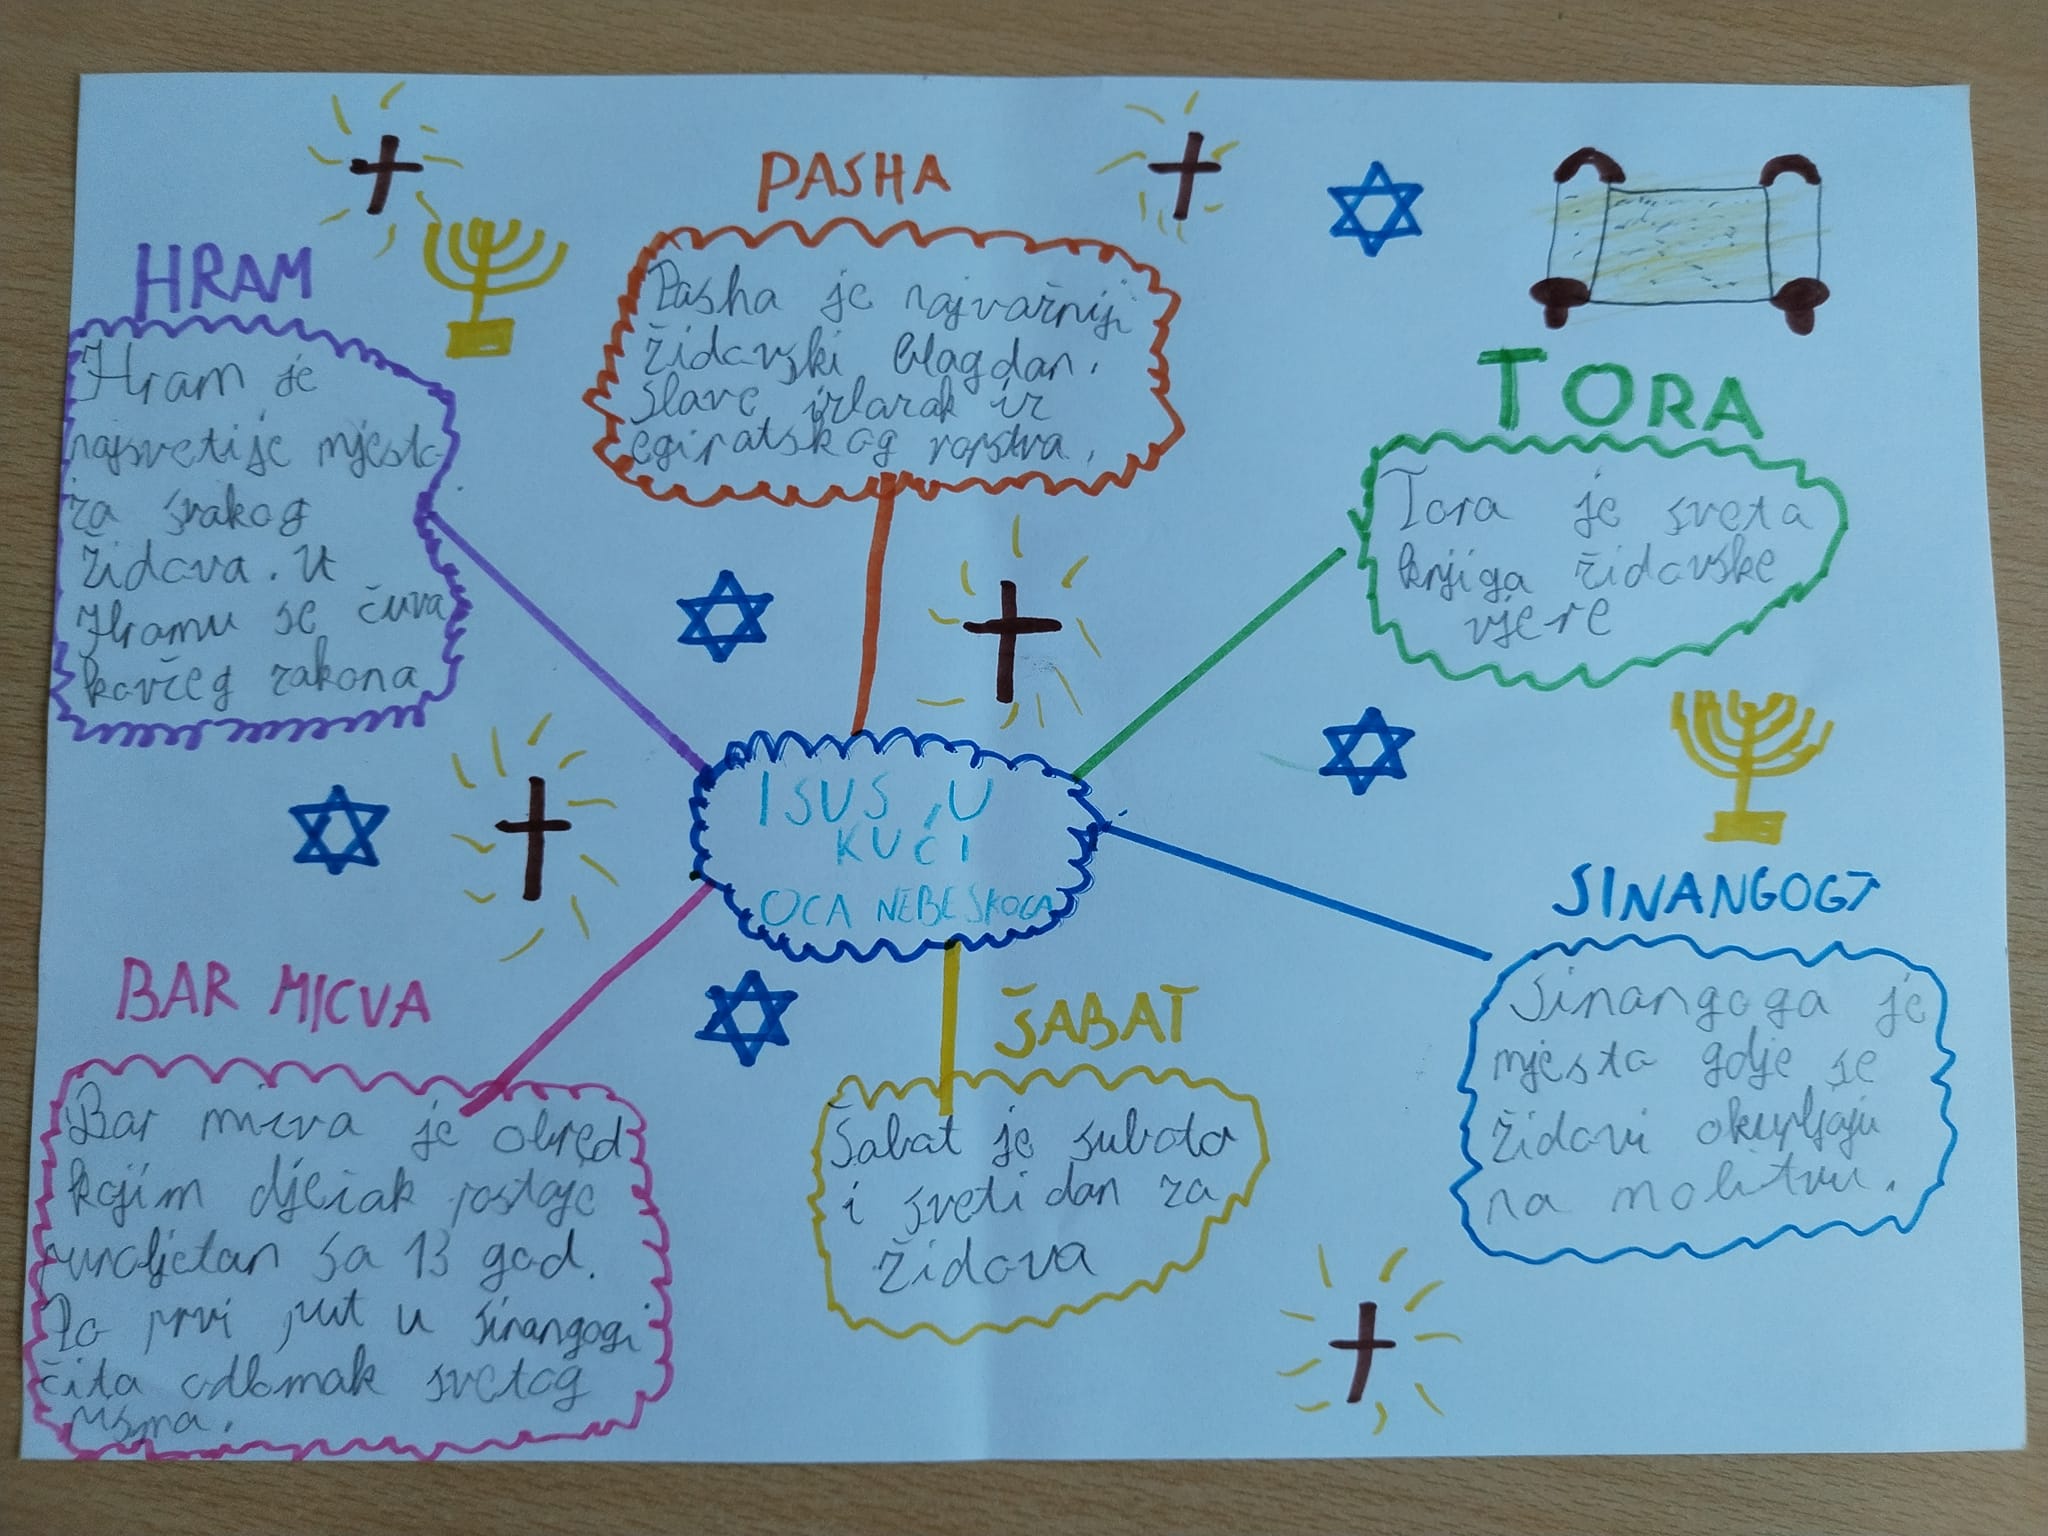 PASHA
Pasha je najvažniji
židovski blagdan.
Slave izlazak iz
egipatskog ropstva.
HRAM
Hram je
najsvetije mjesto
za svakog
židova. U
Hramu se čuva
kovčeg zakona
TORA
Tora je sveta
knjiga židovske
vjere
ISUS U
KUĆI
OCA NEBESKOGA
SINANGOGA
Sinangoga je
mjesto gdje se
židovi okupljaju
na molitvu.
BAR MICVA
Bar micva je obred
kojim dječak postaje
punoljetan sa 13 god.
Po prvi put u sinangogi
čita odlomak svetog
pisma.
ŠABAT
Šabat je subota
i sveti dan za
židova